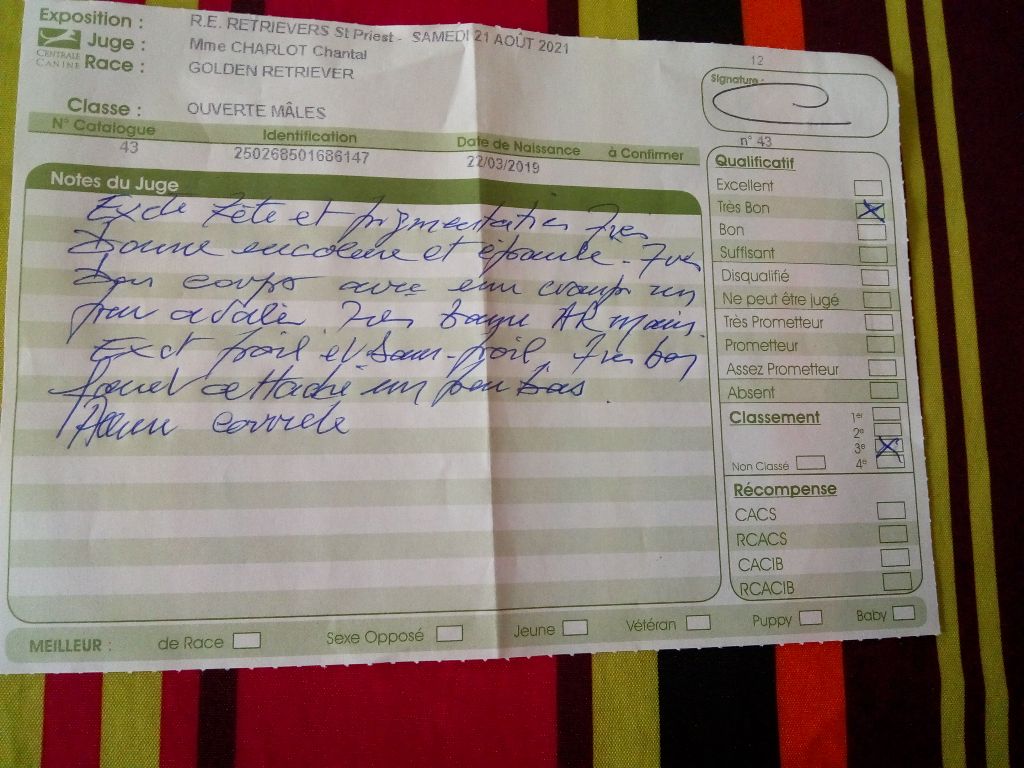 Exposition : R.E. RETRIEVERS St Priest - SAMEDI 21 AOÛT 2021
CENTRALE CANINE
Juge : Mme CHARLOT Chantal
Race : GOLDEN RETRIEVER
Classe : OUVERTE MÂLES
N° Catalogue Identification Date de Naissance à Confirmer
43 250268501686147 22/03/2019
Notes du Juge
Excte tête et pigmentation Très
bonne encolure et épaule. Très
bon corps avec une croupe un
peu avalée. Très bonne AR main.
Exct poil et sous-poil. Très bon
fouet attaché un peu bas.
Allure correcte
12
Signature :
n° 43
Qualificatif
Excellent
Très Bon
Bon
Suffisant
Disqualifié
Ne peut être jugé
Très Prometteur
Prometteur
Assez Prometteur
Absent
Classement 1er
2e
3e
Non Classé 4e
Récompense
CACS
RCACS
CACIB
RCACIB
MEILLEUR : de Race Sexe Opposé Jeune Vétéran Puppy Baby